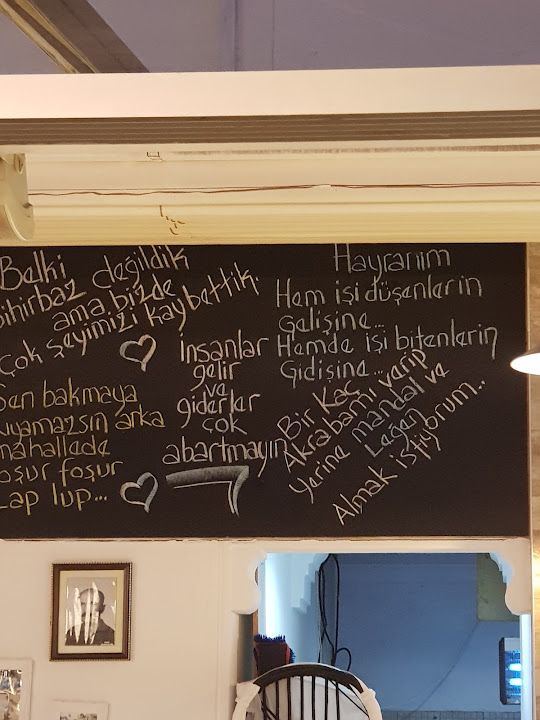 Belki değildik
ihirbaz
ama bizde
Çok şeyimizi kaybettik.
Sen bakmaya
kıyamazsın arka
mahallede
oşur foşur
Lap lup...
İnsanlar
gelir
ve
giderler
çok
abartmayın
Hayranım
Hem işi düşenlerin
Gelişine...
Hemde işi bitenlerin
Gidişine...
Bir Kaç
Akrabamı verip
Yerine mandal ve
Leğen
Almak istiyorum..